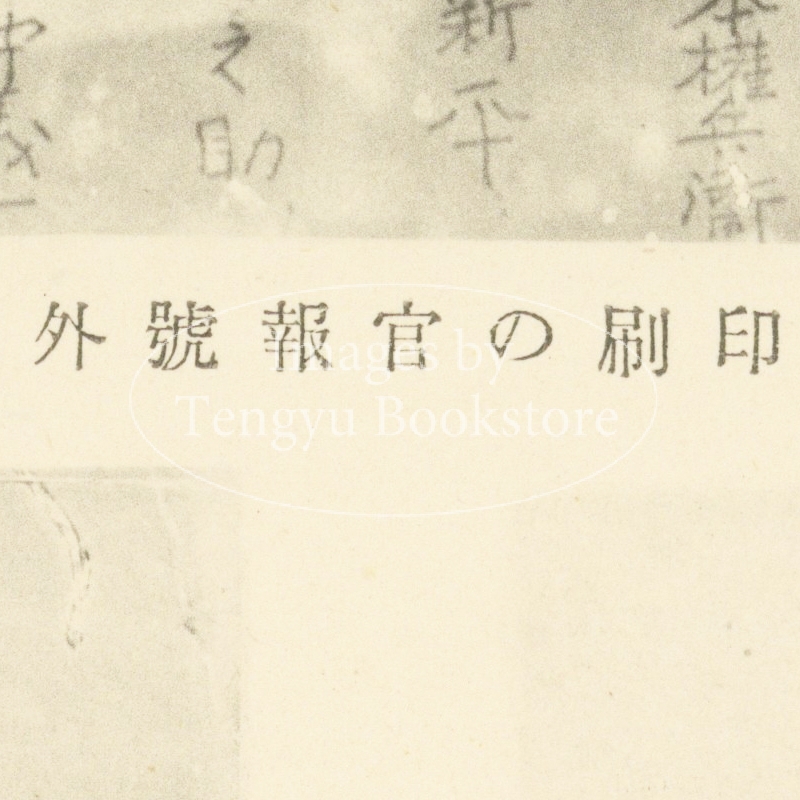 本權兵衛
新平
之助
印刷の官報號外
Images by
Tengyu Bookstore